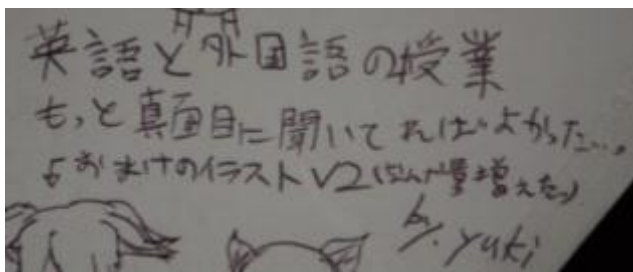 英語と外国語の授業
もっと真面目に聞いてればよかった…。
おまけのイラストV2(増えた)
by. yuki